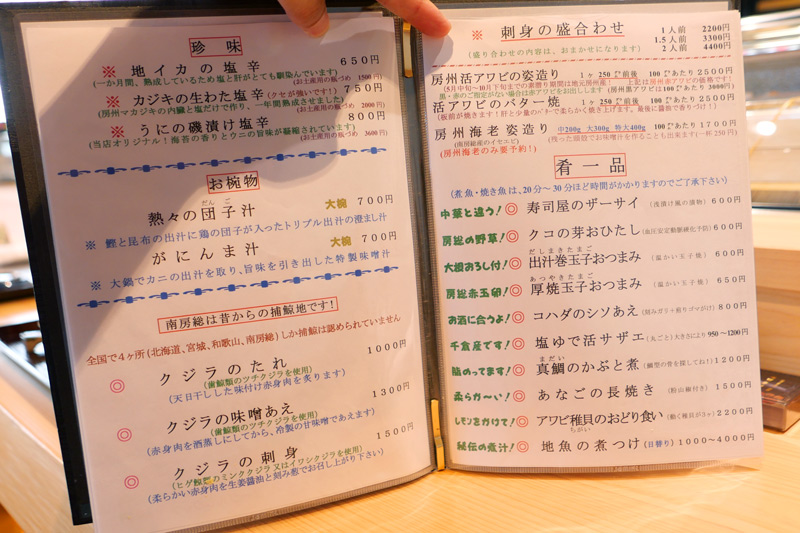 珍味
※ 地イカの塩辛 650円
(一か月間、熟成しているため塩と肝がとても馴染んでいます) (お土産用の瓶づめ 1500円)
※ カジキの生わた塩辛 (クセが強いです!) 750円
(房州マカジキの内臓と塩だけで作り、一年間熟成させました) (お土産用の瓶づめ 2000円)
※ うにの磯漬け塩辛 800円
(当店オリジナル!海苔の香りとウニの旨味が凝縮されています) (お土産用の瓶づめ 3600円)
お椀物
熱々の団子汁 大椀 700円
だんご
※ 鰹と昆布の出汁に鶏の団子が入ったトリプル出汁の澄まし汁
がにんま汁 大椀 700円
※ 大鍋でカニの出汁を取り、旨味を引き出した特製味噌汁
南房総は昔からの捕鯨地です!
全国で4ヶ所(北海道、宮城、和歌山、南房総)しか捕鯨は認められていません
◎ クジラのたれ 1000円
(歯鯨類のツチクジラを使用)
(天日干しした味付け赤身肉を炙ります)
◎ クジラの味噌あえ 1300円
(歯鯨類のツチクジラを使用)
(赤身肉を酒蒸しにしてから、冷製の甘味噌であえます)
◎ クジラの刺身 1500円
(ヒゲ鯨類のミンククジラ又はイワシクジラを使用)
(柔らかい赤身肉を生姜醤油と刻み葱でお召し上がり下さい)
※ 刺身の盛合わせ
(盛り合わせの内容は、おまかせになります)
1人前 2200円
1.5人前 3300円
2人前 4400円
房州活アワビの姿造り 1ヶ250㌘前後 100㌘あたり2500円
活アワビのバター焼 1ヶ250㌘前後 100㌘あたり2500円
房州海老姿造り 中200g 大300g 特大400g 100㌘あたり1700円
(南房総産のイセエビ) (残った頭殻でお味噌汁を作ることも出来ます)(一杯250円)
(房州海老のみ要予約!)
肴一品
(煮魚・焼き魚は、20分~30分ほど時間がかかりますのでご了承下さい)
中華と違う! ◎ 寿司屋のザーサイ (浅漬け風の漬物) 600円
房総の野草! ◎ クコの芽おひたし (血圧安定動脈硬化予防) 600円
大根おろし付! ◎ 出汁巻玉子おつまみ (温かい玉子焼) 600円
だしまきたまご
房総赤玉卵! ◎ 厚焼玉子おつまみ (温かい玉子焼) 650円
あつやきたまご
お酒に合うよ! ◎ コハダのシソあえ (刻みガリ煎りゴマがけ) 800円
千倉産です! ◎ 塩ゆで活サザエ (丸ごと)大きさにより950~1200円
◎ 真鯛のかぶと煮 (鯛型の骨を探してね!) 1200円
まだい
柔らか~い! ◎ あなごの長焼き (粉山椒付き) 1500円
レモンをかけて! ◎ アワビ稚貝のおどり食い (動く稚貝が3ヶ) 2200円
ちがい
秘伝の煮汁! ◎ 地魚の煮つけ (日替り) 1000~4000円